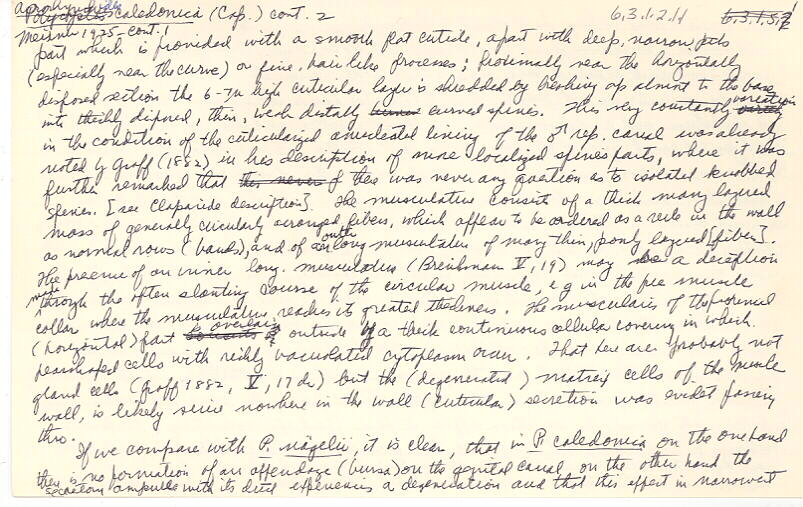 Polycystis caledonica (Cap.) cont. 2 6.3.1.2.11
Meixner 1925 - cont. 1
part which is provided with a smooth flat cuticle, apart with deep, narrow pits
(especially near the curve) or fine, hair like processes; proximally near the horizontally
disposed section the 6-7u high cuticular layer is shredded by breaking up almost to the base
into disposed, thin, weak distally curved spines. This very constantly variation
in the condition of the cuticularized lining of the ♂ rep. canal was already
noted by Graff (1882) in his description of more localized spines parts, where it was
further remarked that there was never any question as to isolated knobbed
spines. [see Claparède description]. The musculature consists of a thick many layered
mass of generally circularly arranged fibers, which appear to be ordered as a rule in the wall
as normal rows (bands), and of an outer long musculature of many thin, poorly layered [fibers].
The presence of an inner long. musculature (V, 19) may be a deception
through the often slanting course of the circular muscle, e.g in the muscle
collar where the musculature reaches its greatest thickness. The muscularis of the proximal
(horizontal) part overlain outside of a thick continuous cellular covering in which
pearshaped cells with richly vacuolated cytoplasm occur. That here are probably not
gland cells (Graff 1882, V, 17 dr) but the (degenerated) matrix cells of the muscle
wall, is likely since nowhere in the wall (cuticular) secretion was evident passing
thro.
If we compare with P. nägelii, it is clear, that in P. caledonica on the one hand
there is no formation of an appendage (bursa) on the genital canal, on the other hand the
secretory ampulla with its duct experiences a degeneration and that this effect in narrowest